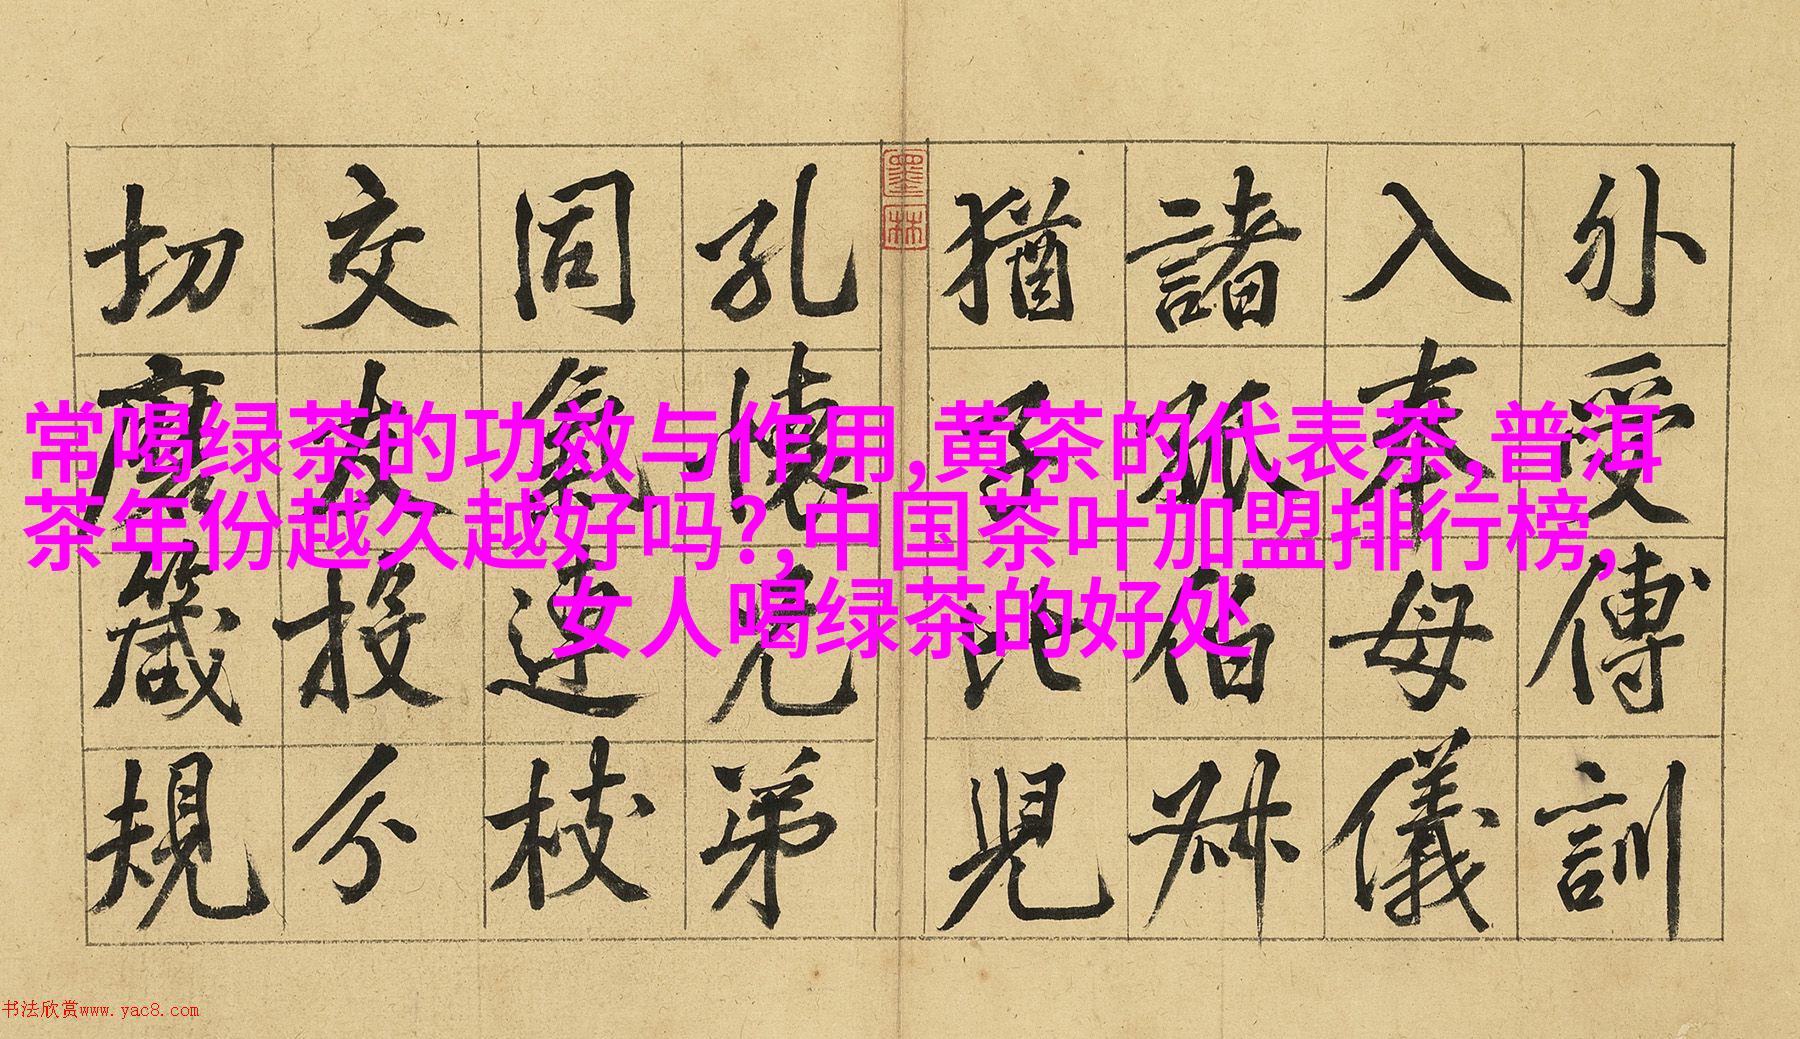 外受傅訓
入奉母儀
諸姑伯叔
猶子比兒
墨林
孔懷兄弟
同氣連枝
交友投分
切磨箴規
常喝绿茶的功效与作用,黄茶的代表茶,普洱
茶年份越久越好吗?,中国茶叶加盟排行榜,
女人喝绿茶的好处
书法欣赏www.yac8.com